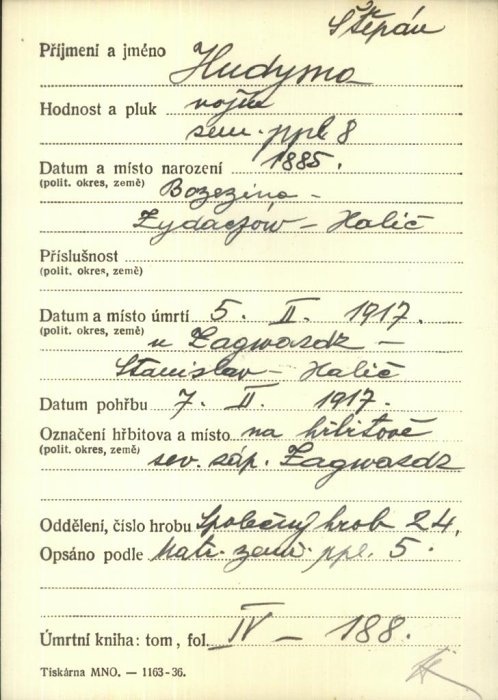 Štěpán
Příjmení a jméno Hudyma
Hodnost a pluk vojín
zem. ppl. 8
Datum a místo narození 1885.
(polit. okres, země) Bozezina -
Zydaczów - Halič
Příslušnost
(polit. okres, země)
Datum a místo úmrtí 5. II. 1917.
(polit. okres, země) u Zagwozdz -
Stanislav - Halič
Datum pohřbu 7. II. 1917.
Označení hřbitova a místo na hřbitově
(polit. okres, země) sev. záp. Zagwozdz
Oddělení, číslo hrobu Společný hrob 24.
Opsáno podle Matr. zem. ppl. 5.
Úmrtní kniha: tom, fol. IV - 188.
Tiskárna MNO. — 1163-36.